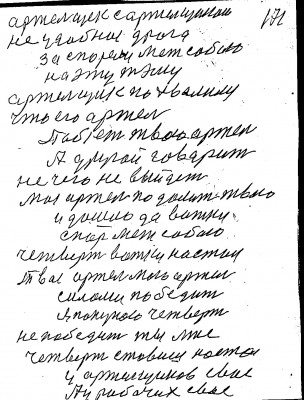 артельщик с артельщиком 171
не удобное дрога
заспорели меж собою
на эту тэму
артельщик похвалили
что его артел
Побіет твою артел
А другой говорит
не чего не выйдет
моя артел
и дошло да вотки
спор меж собою
четверт вотки настои
твое артел мою артел
силами победит
четверт
не победит ты мне
четверт ставиш настои
у артельщиков свае
А у рабочих свае